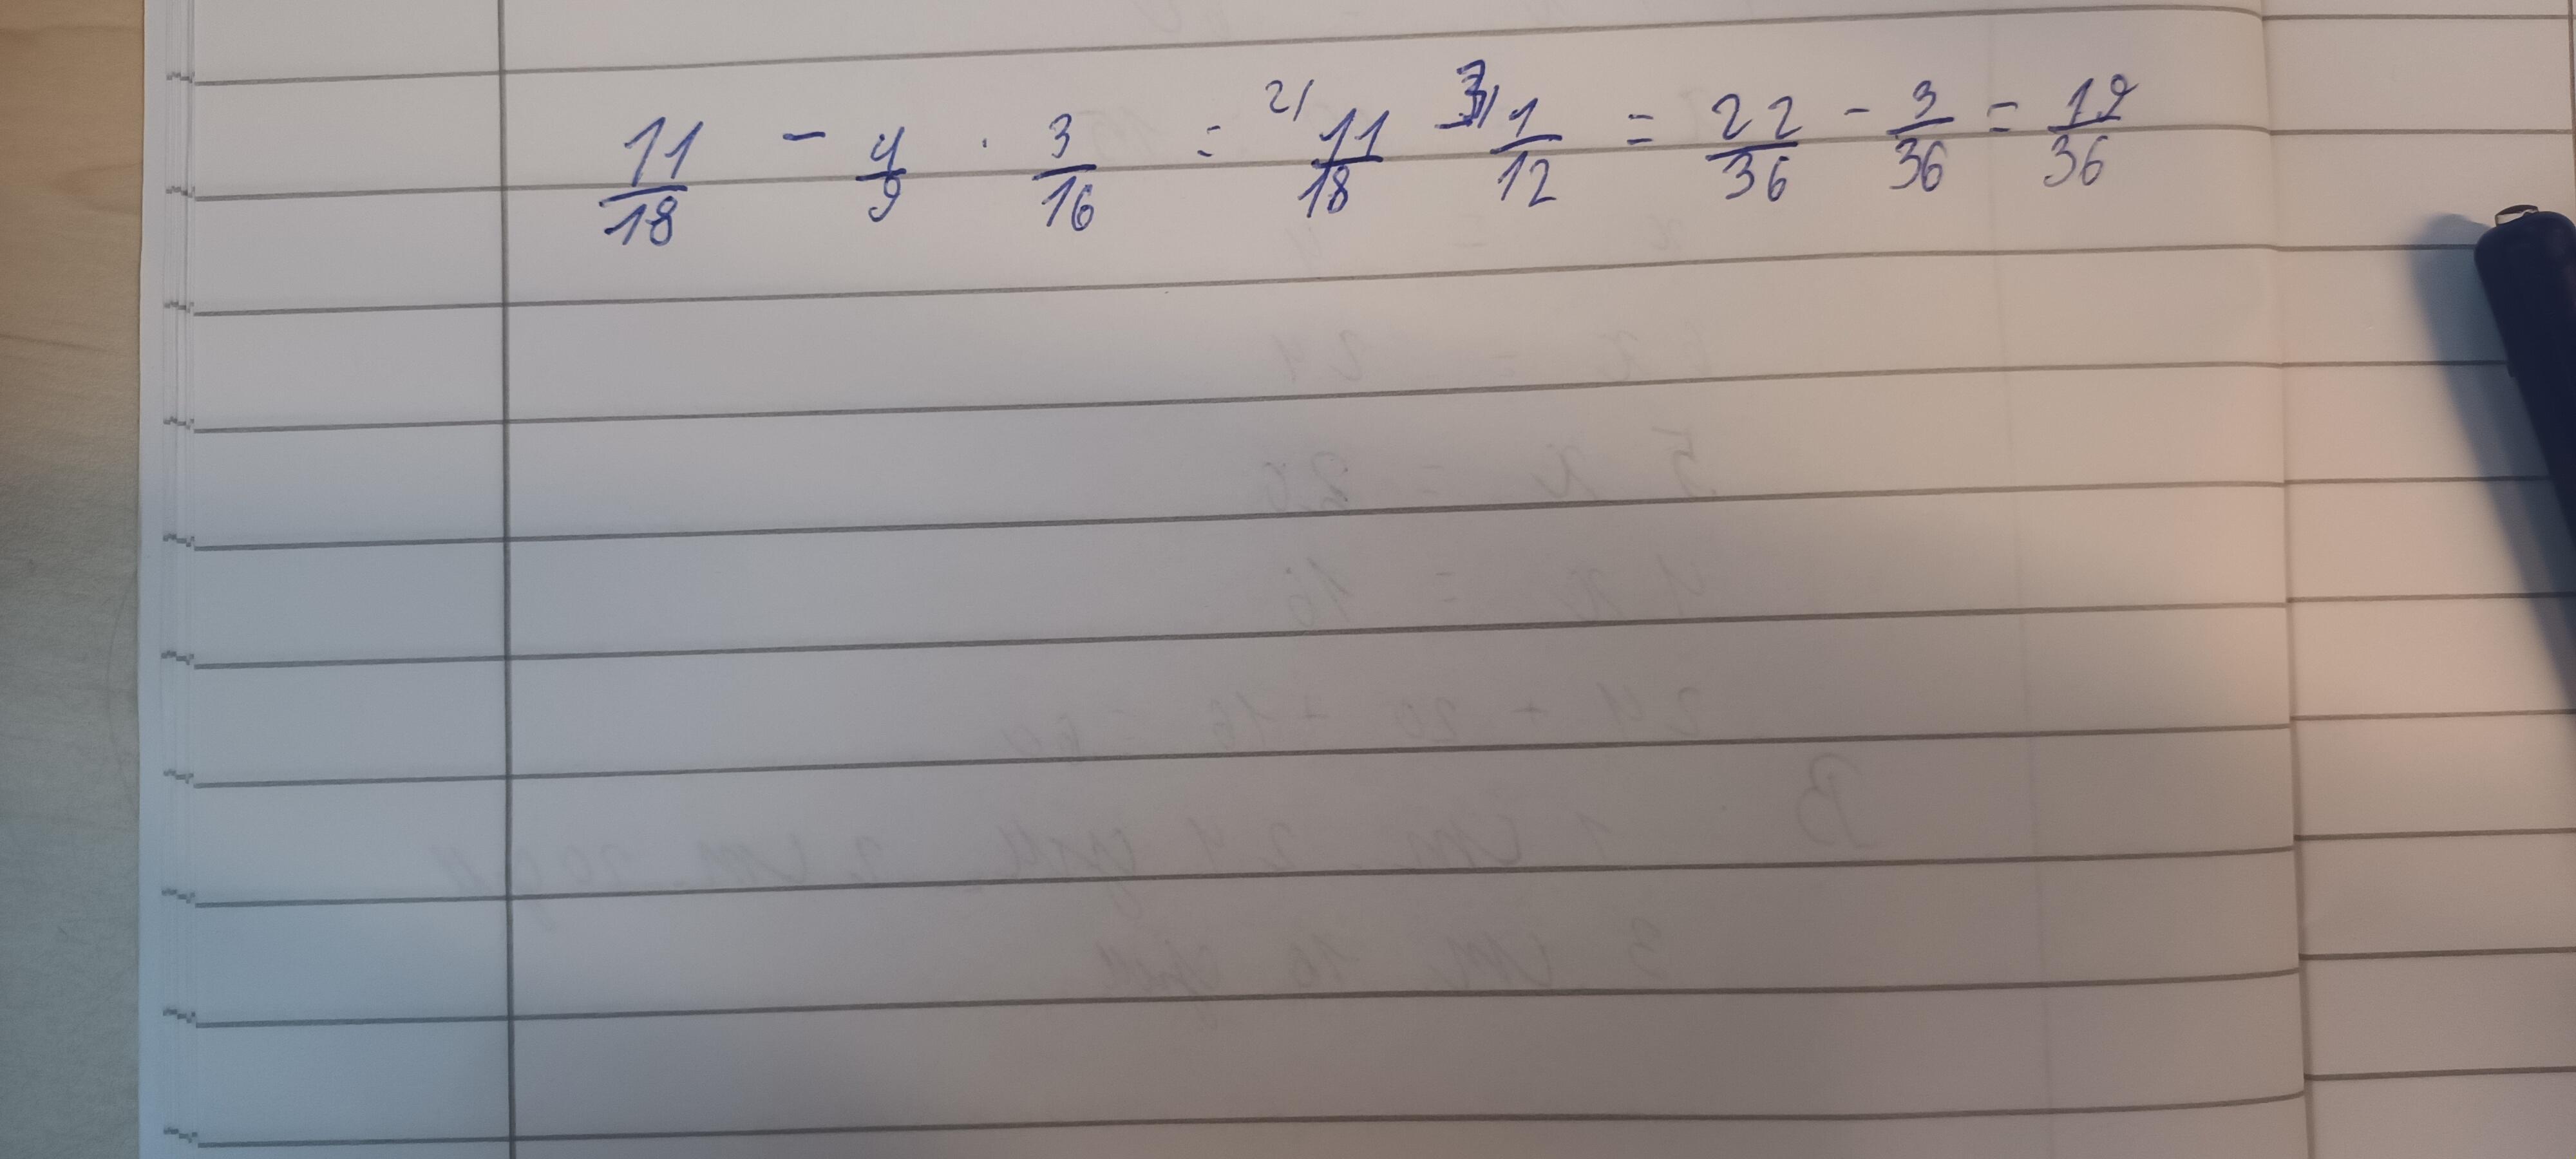 11/18 - 4/9 · 3/16 = 2/ 11/18 - 3/ 1/12 = 22/36 - 3/36 = 19/36